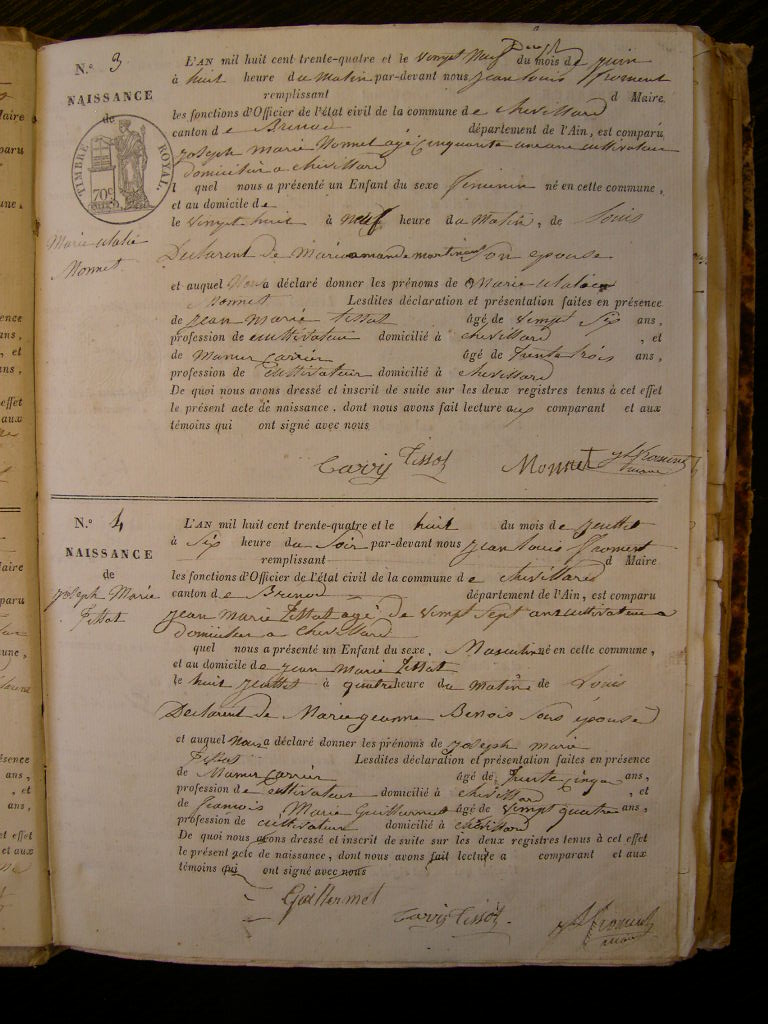 N.° 3
NAISSANCE
de
TIMBRE ROYAL
70c
Marie ulalie
Monnet
L'AN mil huit cent trente-quatre et le vingt neuf du mois de juin
à huit heure du matin par-devant nous jean louis froment
remplissant d Maire
les fonctions d'Officier de l'état civil de la commune de chevillard
canton de Brenod département de l'Ain, est comparu
joseph marie Monnet agé cinquante cultivateur
domicilier a chevillard
l quel nous a présenté un Enfant du sexe feminin né en cette commune,
et au domicile de
le vingt huit à neuf heure du matin, de Louis
Declarent de marie son epouse
et auquel Nous a déclaré donner les prénoms de Marie ulalie
Monnet Lesdites déclaration et présentation faites en présence
de jean marie tissot âgé de vingt six ans,
profession de cultivateur domicilié à chevillard , et
de Mamer carrier âgé de trente trois ans,
profession de cultivateur domicilié à chevillard
De quoi nous avons dressé et inscrit de suite sur les deux registres tenus à cet effet
le présent acte de naissance, dont nous avons fait lecture aux comparant et aux
témoins qui ont signé avec nous
Tissot Monnet jl froment
maire
N.° 4
NAISSANCE
de
joseph Marie
tissot
L'AN mil huit cent trente-quatre et le huit du mois de juillet
à six heure du soir par-devant nous jean louis froment
remplissant d Maire
les fonctions d'Officier de l'état civil de la commune de chevillard
canton de Brenod département de l'Ain, est comparu
jean marie tissot agé de vingt sept ans cultivateur a
domicilier a chevillard
quel nous a présenté un Enfant du sexe Masculin né en cette commune,
et au domicile de jean marie tissot
le huit juillet à quatre heure du matin de Louis
Declarent de Marie jeanne Benois sons épouse
et auquel Nous a déclaré donner les prénoms de joseph marie
tissot Lesdites déclaration et présentation faites en présence
de Mamer carrier âgé de trente cinq ans,
profession de cultivateur domicilié à chevillard , et
de francois Marie Guillermet âgé de vingt quatre ans,
profession de cultivateur domicilié à chevillard
De quoi nous avons dressé et inscrit de suite sur les deux registres tenus à cet effet
le présent acte de naissance, dont nous avons fait lecture a comparant et aux
témoins qui ont signé avec nous
Guillermet
Tissot jl froment
maire